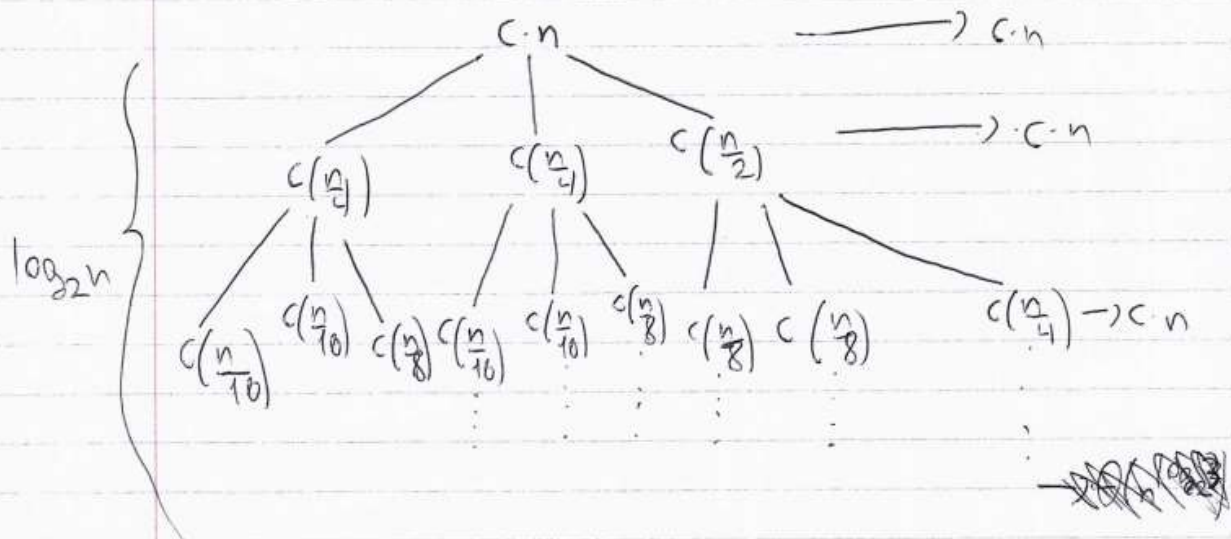 c·n → c·n
c(n/4) c(n/4) c(n/2) → ·c·n
log₂n
c(n/16) c(n/16) c(n/8) c(n/16) c(n/16) c(n/8) c(n/8) c(n/8) c(n/4) → c·n